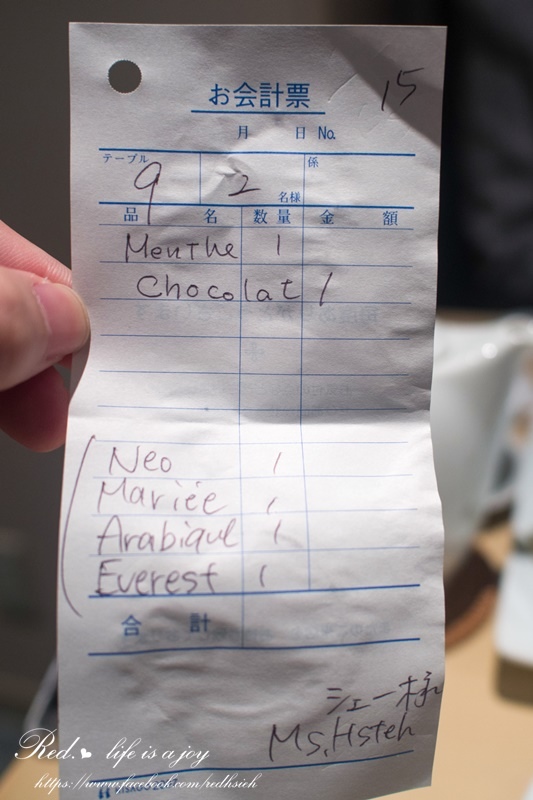 15
お会計票
月 日 No.
テーブル 9 2 名様 係
品 名 数量 金 額
Menthe 1
Chocolat 1
Neo 1
Mariée 1
Arabique 1
Everest 1
合 計
シェー様
Ms. Hsieh
Red. life is a joy
https://www.facebook.com/redhsieh